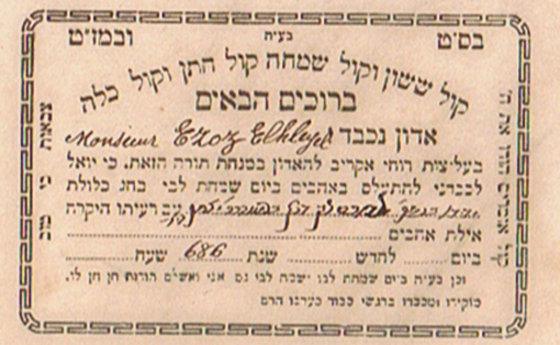 בס״ט בע״ה ובמז״ט
קול ששון וקול שמחה קול חתן וקול כלה
ברוכים הבאים
אדון נכבד Monsieur
בעליצות רוחי אקריב להאדון במנחת תורה הזאת, כי יואל
לכבדני להתעלם באהבים ביום שמחת לבי בחג כלולת
רעיתו היקרה
אילת אהבים
ביום לחדש שנת 686 שעה
וכן בע״ה ביום שמחת לבו ישבח לבי גם אני ואשלם הודות חן חן לו.
מוקירו ומכבדו ברגשי כבוד כערכו הרם
קול אומרים הודו את ה׳
צבאות כי טוב